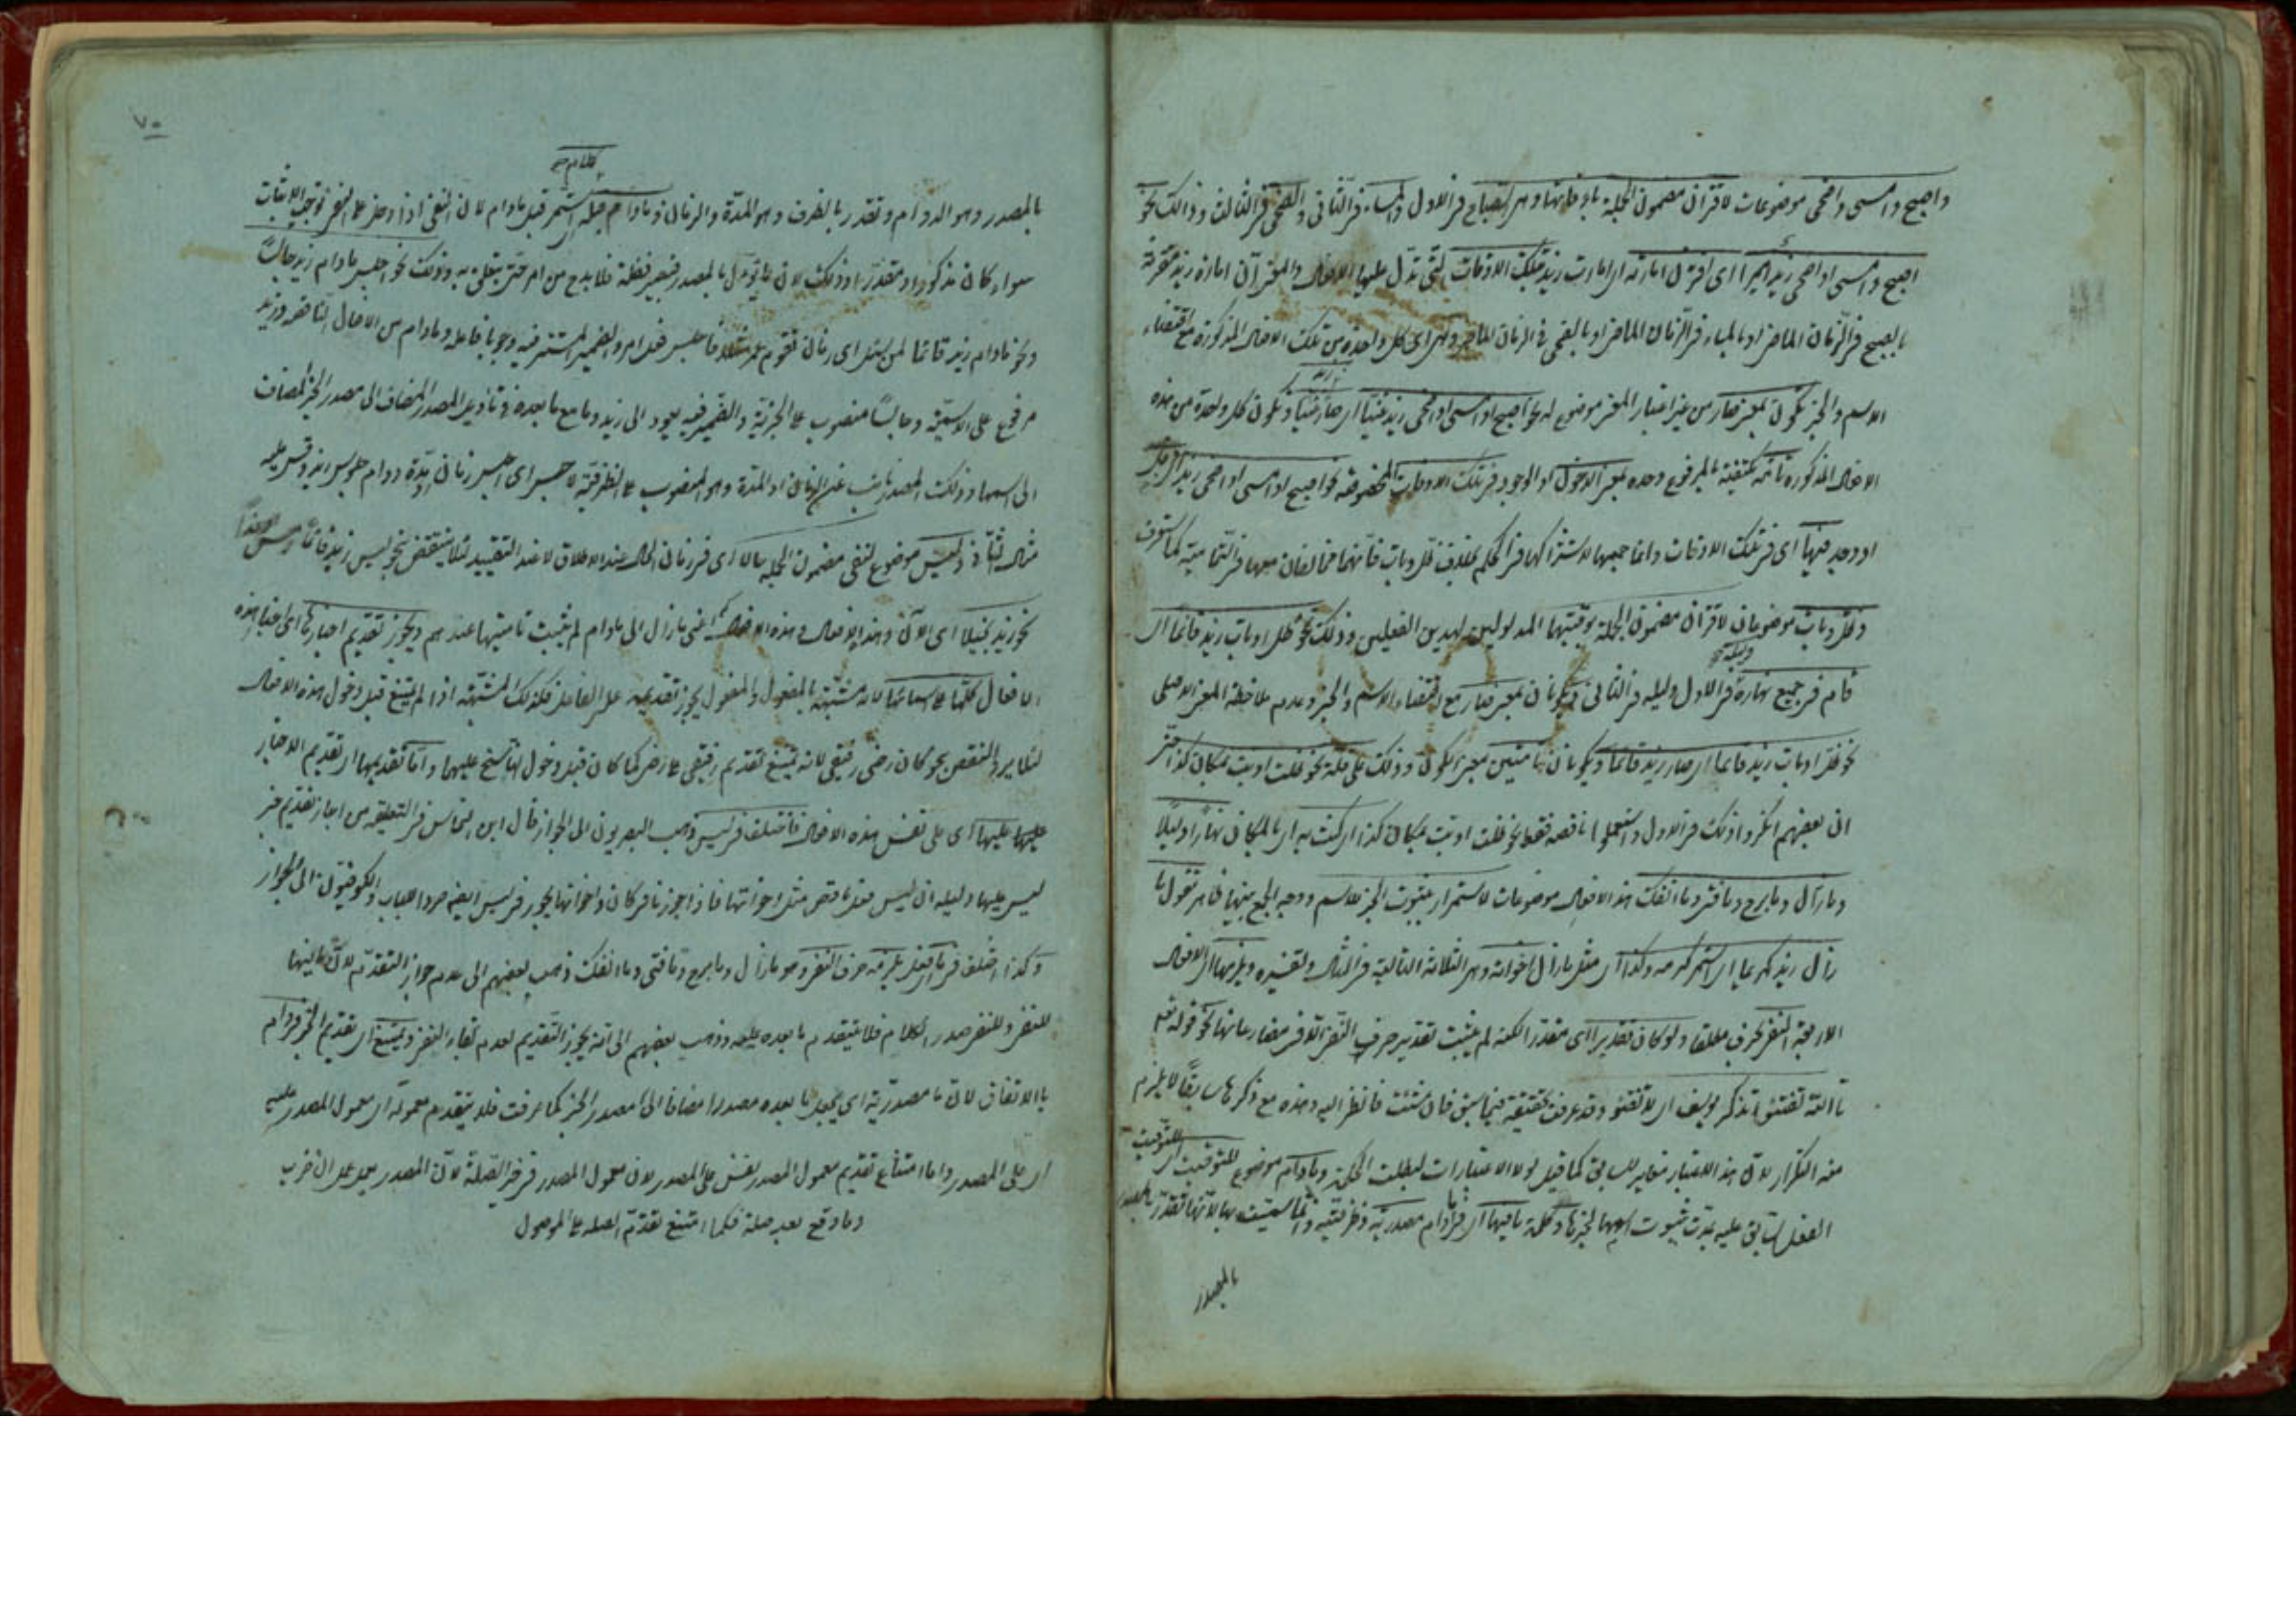 واصبح وامسى واضحى موضوعات لاقتران مضمون الجملة باوقاتها وهى الصباح فى الاول والمساء فى الثانى والضحى فى الثالث وذالك نحو
اصبح وامسى او اضحى زيد اميرا اى اقترن امارته اى امارت زيد بتلك الاوقات التى تدل عليها الافعال والمعنى ان امارة زيد مقترنة
بالصبح فى الزمان الماضى او بالمساء فى الزمان الماضى او بالضحى فى الزمان الماضى وهى اى كل واحدة من تلك الافعال المذكورة مع اقتضاء
الاسم والخبر تكون بمعنى صار من غير اعتبار المعنى موضوع له نحو اصبح او امسى او اضحى زيد غنيا اى صار غنيا وتكون كل واحدة من هذه
الافعال المذكورة تامة مكتفية بالمرفوع وحده بمعنى الدخول او الوجود فى تلك الاوقات المخصوصة نحو اصبح او امسى او اضحى زيد اى دخل
او وجد فيها اى فى تلك الاوقات وانما جمعها لاشتراكها فى الحكم بخلاف ظل وبات فانهما مخالفان معها فى التمامية كما ستعرف
وظل وبات موضوعان لاقتران مضمون الجملة بوقتيهما المدلولين لهذين الفعلين وذلك نحو ظل او بات زيد قائما اى
قام فى جميع نهاره فى الاول وليله فى الثانى ويكونان بمعنى صار مع اقتضاء الاسم والخبر وعدم ملاحظة المعنى الاصلى
نحو ظل او بات زيد قائما اى صار زيد قائما ويكونان تامتين بمعنى الكون وذلك على قلة نحو ظلت او بت بمكان كذا حتى
ان بعضهم انكروا ذلك فى الاول واستعملوا ناقصة فقط نحو ظلت او بت بمكان كذا اى كنت به اى بالمكان نهارا وليلا
وما زال وما برح وما فتى وما انفك هذه الافعال موضوعات لاستمرار ثبوت الخبر للاسم ووجه الجمع بينها ظاهر تقول ما
زال زيد كريما اى استمر كرمه وكذا اى مثل ما زال اخواته وهى الثلاثة التالية فى المثال وتفسيره ويلزمها اى الافعال
الاربعة النفى بحرف مطلقا ولو كان تقديرا اى مقدرا لكنه لم يثبت تقدير حرف النفى الا فى مضارعاتها نحو قوله تعالى
تاالله تفتئوا تذكر يوسف اى لا تفتؤ وقد عرفت تحقيقه فيما سبق فان شئت فانظر اليه وهذه مع ذكرها سابقا لا يلزم
منه التكرار لان هذا الاعتبار مغاير للسابق كما قيل لولا الاعتبارات لبطلت الحكمة وما دام موضوع للتوقيت اى لتوقيت
الفعل السابق عليه بمدت ثبوت اسمها لخبرها وكلمة ما فيها اى فى ما دام مصدرية وظرفيته وانما سميت بها لانها تقدر بالمصدر
بالمصدر
٧٠
بالمصدر وهو الدوام وتقدر بالظرف وهو المدة والزمان وما دام جملة استمر قبل ما دام لان النفى اذا دخل على النفى توجب الاثبات
سواء كان مذكورا او مقدرا وذلك لان ما تؤول بالمصدر فيصير فضلة فلا بد من امر حتى يتعلق به وذلك نحو اجلس ما دام زيد جالسا
ونحو ما دام زيد قائما لمن يسئل اى زمان تقوم عمرو مثلا فاجلس فعل امر والضمير المستتر فيه وجوبا فاعله وما دام من الافعال الناقصة وزيد
مرفوع على الاسمية وجالسا منصوب على الخبرية والضمير فيه يعود الى زيد وما مع ما بعده فى تاويل المصدر المضاف الى مصدر الخبر المضاف
الى اسمها وذلك المصدر نائب عن الزمان او المدة وهو المنصوب على الظرفية لاجلس اى اجلس زمان او مدة دوام جلوس زيد وقس عليه
مثال الثانى وليس موضوع لنفى مضمون الجملة حالا اى فى زمان الحال عند الاطلاق لا عند التقييد لئلا ينتقض بنحو ليس زيد قائما امس او غدا
نحو زيد بخيلا اى الآن وهذه الافعال وهذه الافعال اعنى ما زال الى ما دام لم يثبت تاميتها عندهم ويجوز تقديم اخبارها اى اخبار هذه
الافعال كلها على اسمائها لانه مشبهة بالمفعول والمفعول يجوز تقديمه على الفاعل فكذلك المشبهة اذا لم يمتنع قبل دخول هذه الافعال
لئلا يرد النقض بنحو كان رضى رفيقى لانه يمتنع تقديم رفيقى على رضى كما كان قبل دخول الناسخ عليهما واما تقديمها اى تقديم الاخبار
عليها عليها اى على نفس هذه الافعال فاختلف فى ليس ذهب البصريون الى الجواز قال ابن النحاس فى التعليقة من اجاز تقديم خبر
ليس عليها دليله ان ليس فعل ناقص مثل اخواتها فاذا جوزنا فى كان واخواتها يجوز فى ليس ايضا طردا للباب والكوفيون الى الجواز
وكذا اختلف فى ما يلزمه حرف النفى وهو ما زال وما برح وما فتى وما انفك ذهب بعضهم الى عدم جواز التقدم لان ما فيها
للنفى وللنفى صدر الكلام فلا يتقدم ما بعده عليه وذهب بعضهم الى انه يجوز التقديم لعدم بقاء النفى ويمتنع اى تقديم الخبر فى ما دام
بالاتفاق لان ما مصدرية اى يجعل ما بعده مصدرا مضافا الى مصدر الخبر كما عرفت فلا يتقدم معموله اى معمول المصدر عليه
اى على المصدر واما امتناع تقديم معمول المصدر نفس على المصدر لان معمول المصدر فى حيز الصلة لان المصدر يعمل عمل ان ضرب
وما وقع بعد صلة فكما امتنع تقدم الصلة على الموصول